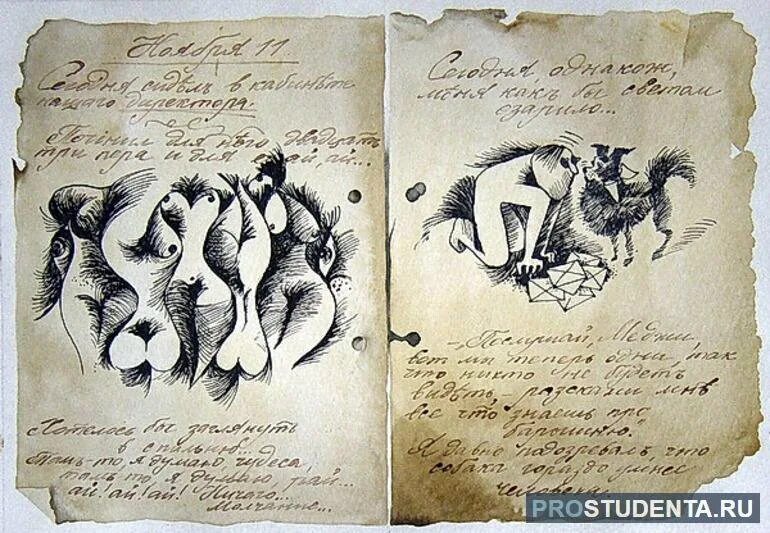 Ноября 11
Сегодня сидѣлъ в кабинѣте
нашего директора.
Починил для него двадцать
три пера и для ай, ай...
Хотелось бы заглянуть
в спальню...
Тамъ-то, я думаю, чудеса,
тамъ-то, я думаю, рай...
ай! ай! ай! Ничего...
Молчание...
Сегодня, однакож,
меня какъ бы светом
озарило...
- "Послушай, Меджи,
вот мы теперь одни, так
что никто не будетъ
видѣть, - разскажи мнѣ
все что знаешь про
барышню".
Я давно подозревалъ, что
собака гораздо умнее
человека...
PROSTUDENTA.RU